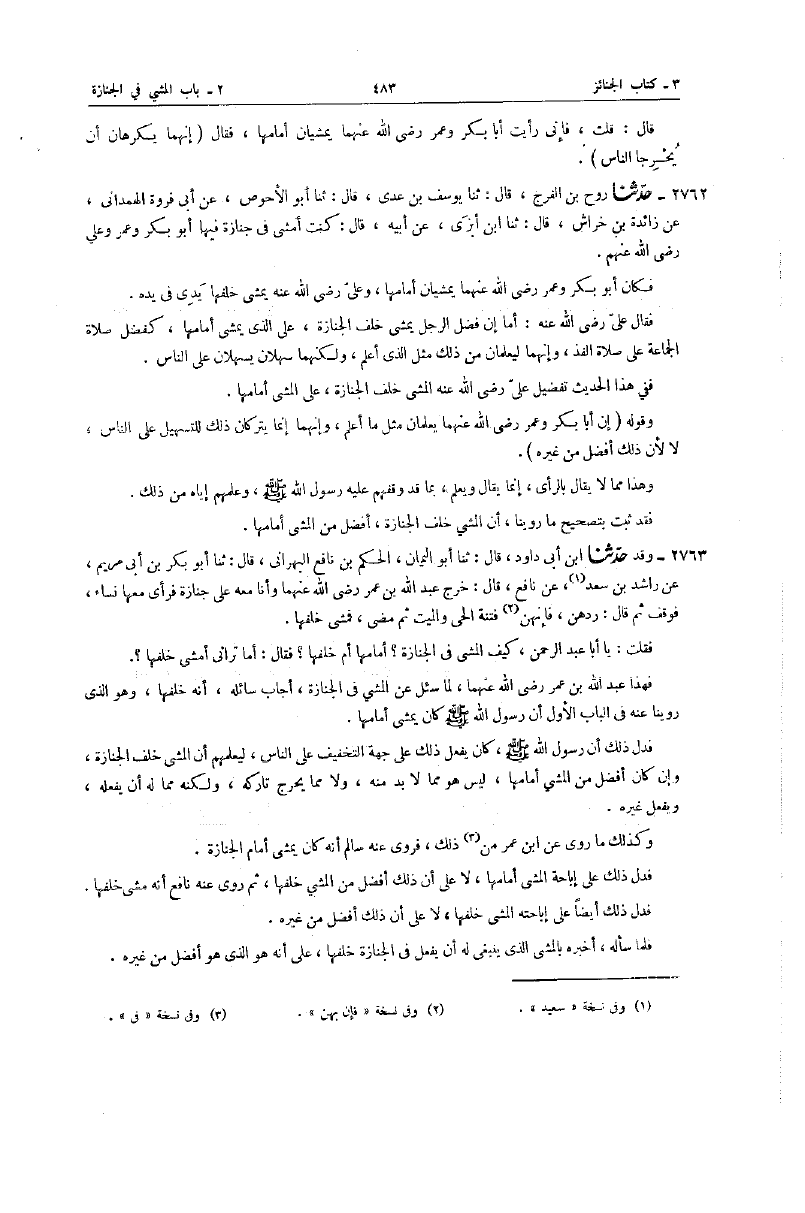 ٣ - كتاب الجنائز ٤٨٣ ٢ - باب المشي في الجنازة
قال : قلت ، فإنى رأيت أبا بكر وعمر رضى الله عنهما يمشيان أمامها ، فقال ( إنهما يكرهان أن
يُخْرِجا الناس ) .
٢٧٦٢ - حدّثنا روح بن الفرج ، قال : ثنا يوسف بن عدى ، قال : ثنا أبو الأحوص ، عن أبى فروة الهمدانى ،
عن زائدة بن خراش ، قال : ثنا ابن أبزَى ، عن أبيه ، قال : كنت أمشى فى جنازة فيها أبو بكر وعمر وعلي
رضى الله عنهم .
فكان أبو بكر وعمر رضى الله عنهما يمشيان أمامها ، وعلىّ رضى الله عنه يمشى خلفها يَدِى فى يده .
فقال علىّ رضى الله عنه : أما إن فضل الرجل يمشى خلف الجنازة ، على الذى يمشى أمامها ، كفضل صلاة
الجماعة على صلاة الفذ ، وإنهما ليعلمان من ذلك مثل الذى أعلم ، ولكنهما سهلان يسهلان على الناس .
ففي هذا الحديث تفضيل علىّ رضى الله عنه المشى خلف الجنازة ، على المشى أمامها .
وقوله ( إن أبا بكر وعمر رضى الله عنهما يعلمان مثل ما أعلم ، وإنهما إنما يتركان ذلك للتسهيل على الناس ،
لا لأن ذلك أفضل من غيره ) .
وهذا مما لا يقال بالرأى ، إنما يقال ويعلم ، بما قد وقفهم عليه رسول الله ﷺ ، وعلمهم إياه من ذلك .
فقد ثبت بتصحيح ما روينا ، أن المشي خلف الجنازة ، أفضل من المشى أمامها .
٢٧٦٣ - وقد حدّثنا ابن أبى داود ، قال : ثنا أبو اليمان ، الحكم بن نافع البهرانى ، قال : ثنا أبو بكر بن أبى مريم ،
عن راشد بن سعد(١) ، عن نافع ، قال : خرج عبد الله بن عمر رضى الله عنهما وأنا معه على جنازة فرأى معها نساء ،
فوقف ثم قال : ردهن ، فإنهن(٢) فتنة الحى والميت ثم مضى ، فمشى خلفها .
فقلت : يا أبا عبد الرحمن ، كيف المشى فى الجنازة ؟ أمامها أم خلفها ؟ فقال : أما ترانى أمشي خلفها ؟.
فهذا عبد الله بن عمر رضى الله عنهما ، لما سئل عن المشي فى الجنازة ، أجاب سائله ، أنه خلفها ، وهو الذى
روينا عنه فى الباب الأول أن رسول الله ﷺ كان يمشي أمامها .
فدل ذلك أن رسول الله ﷺ ، كان يفعل ذلك على جهة التخفيف على الناس ، ليعلمهم أن المشي خلف الجنازة ،
وإن كان أفضل من المشي أمامها ، ليس هو مما لا بد منه ، ولا مما يحرج تاركه ، ولكنه مما له أن يفعله ،
ويفعل غيره .
وكذلك ما روى عن ابن عمر من(٣) ذلك ، فروى عنه سالم أنه كان يمشى أمام الجنازة .
فدل ذلك على إباحة المشى أمامها ، لا على أن ذلك أفضل من المشي خلفها ، ثم روى عنه نافع أنه مشى خلفها .
فدل ذلك أيضاً على إباحته المشى خلفها ، لا على أن ذلك أفضل من غيره .
فلما سأله ، أخبره بالمشى الذى ينبغى له أن يفعل فى الجنازة خلفها ، على أنه هو الذى هو أفضل من غيره .
(١) وفى نسخة « سعيد » . (٢) وفى نسخة « فإن بهن » . (٣) وفى نسخة « فى » .